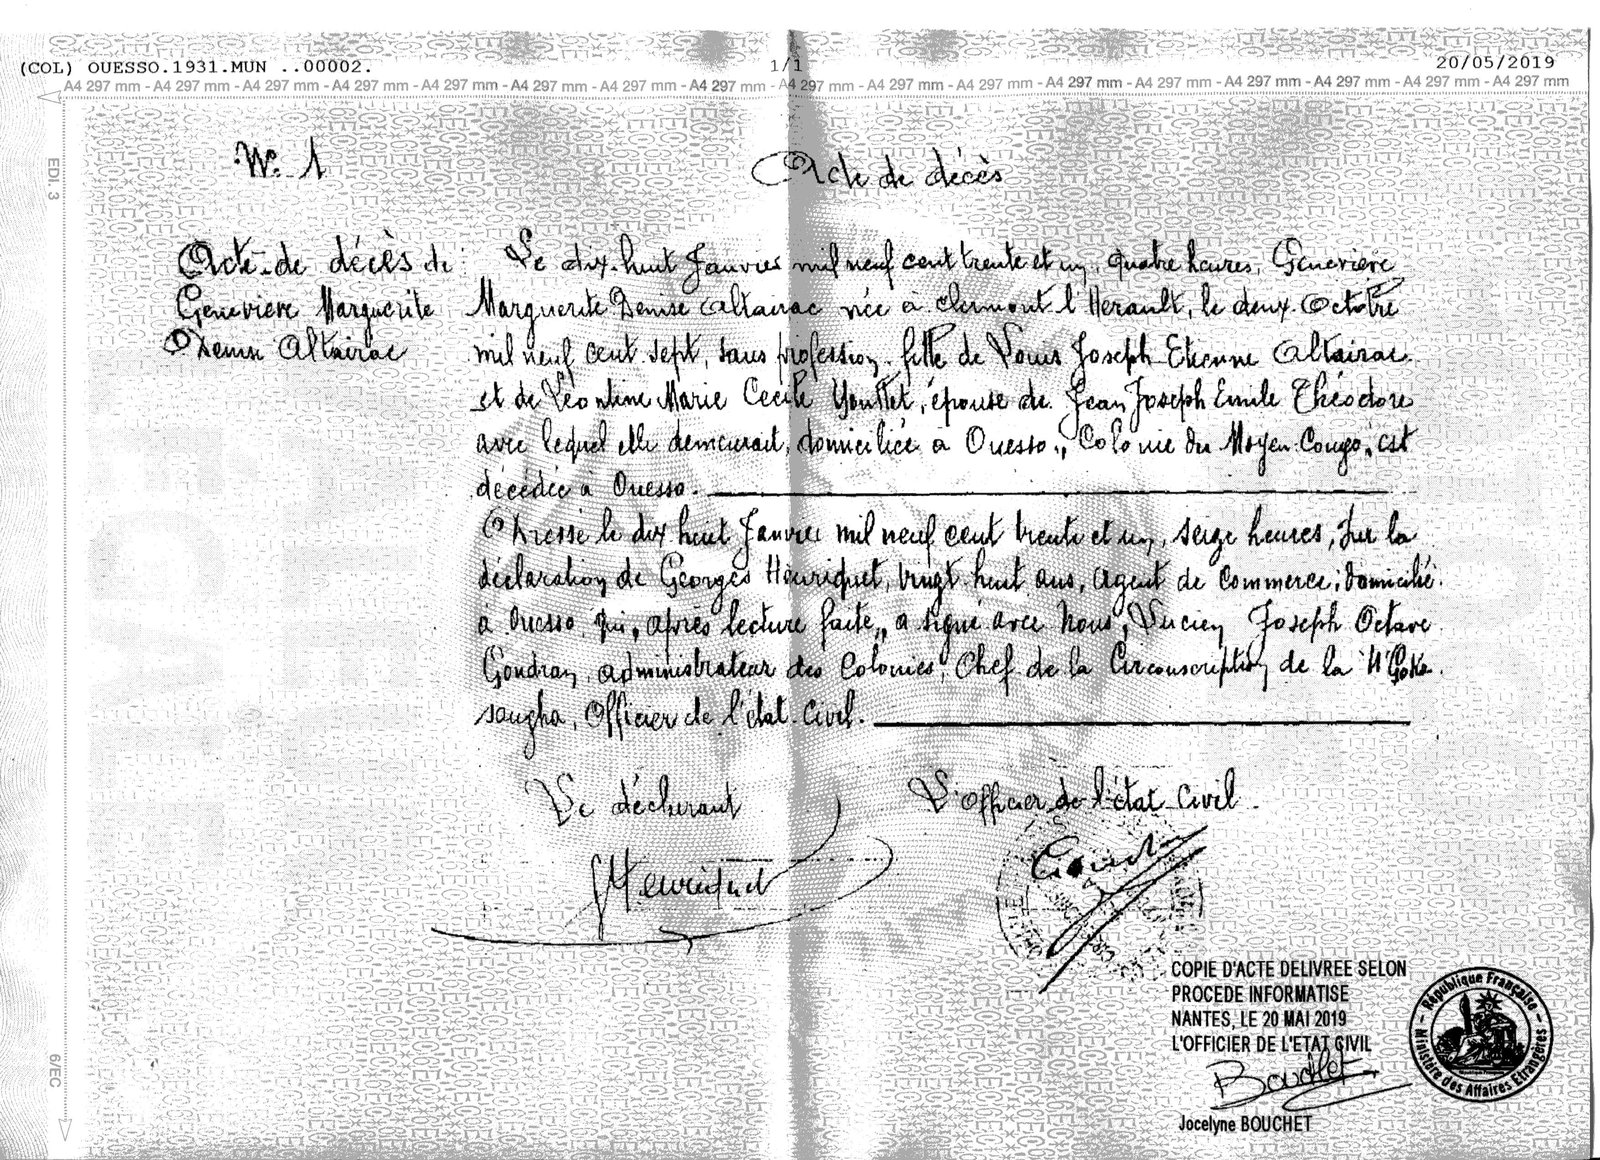 (COL) OUESSO.1931.MUN ..00002. 1/1 20/05/2019
A4 297 mm - A4 297 mm - A4 297 mm - A4 297 mm - A4 297 mm - A4 297 mm - A4 297 mm - A4 297 mm - A4 297 mm - A4 297 mm - A4 297 mm - A4 297 mm - A4 297 mm - A4 297 mm - A4 297 mm - A4 297 mm - A4 297 mm
EDI. 3
N° 1
Acte de décès
Acte de décès de
Geneviève Marguerite
Denise Altairac
Le dix-huit Janvier mil neuf cent trente et un, quatre heures, Geneviève
Marguerite Denise Altairac née à Clermont l'Herault, le deux Octobre
mil neuf cent sept, sans profession, fille de Louis Joseph Etienne Altairac
et de Léontine Marie Cecile, épouse de Jean Joseph Emile Théodore
avec lequel elle demeurait, domiciliée à Ouesso, Colonie du Moyen Congo, est
décédée à Ouesso.
Dressé le dix huit Janvier mil neuf cent trente et un, seize heures, sur la
déclaration de Georges Henriquet, vingt huit ans, agent de commerce, domicilié
à Ouesso, qui, après lecture faite, a signé avec Nous, Lucien Joseph Octave
Gondran, administrateur des Colonies, Chef de la Circonscription de la N'Goko
sangha, Officier de l'état civil.
Le déclarant
L'officier de l'état civil.
Henriquet
COPIE D'ACTE DELIVREE SELON
PROCEDE INFORMATISE
NANTES, LE 20 MAI 2019
L'OFFICIER DE L'ETAT CIVIL
Bouchet
Jocelyne BOUCHET
République Française
Ministère des Affaires Etrangères
6/EC